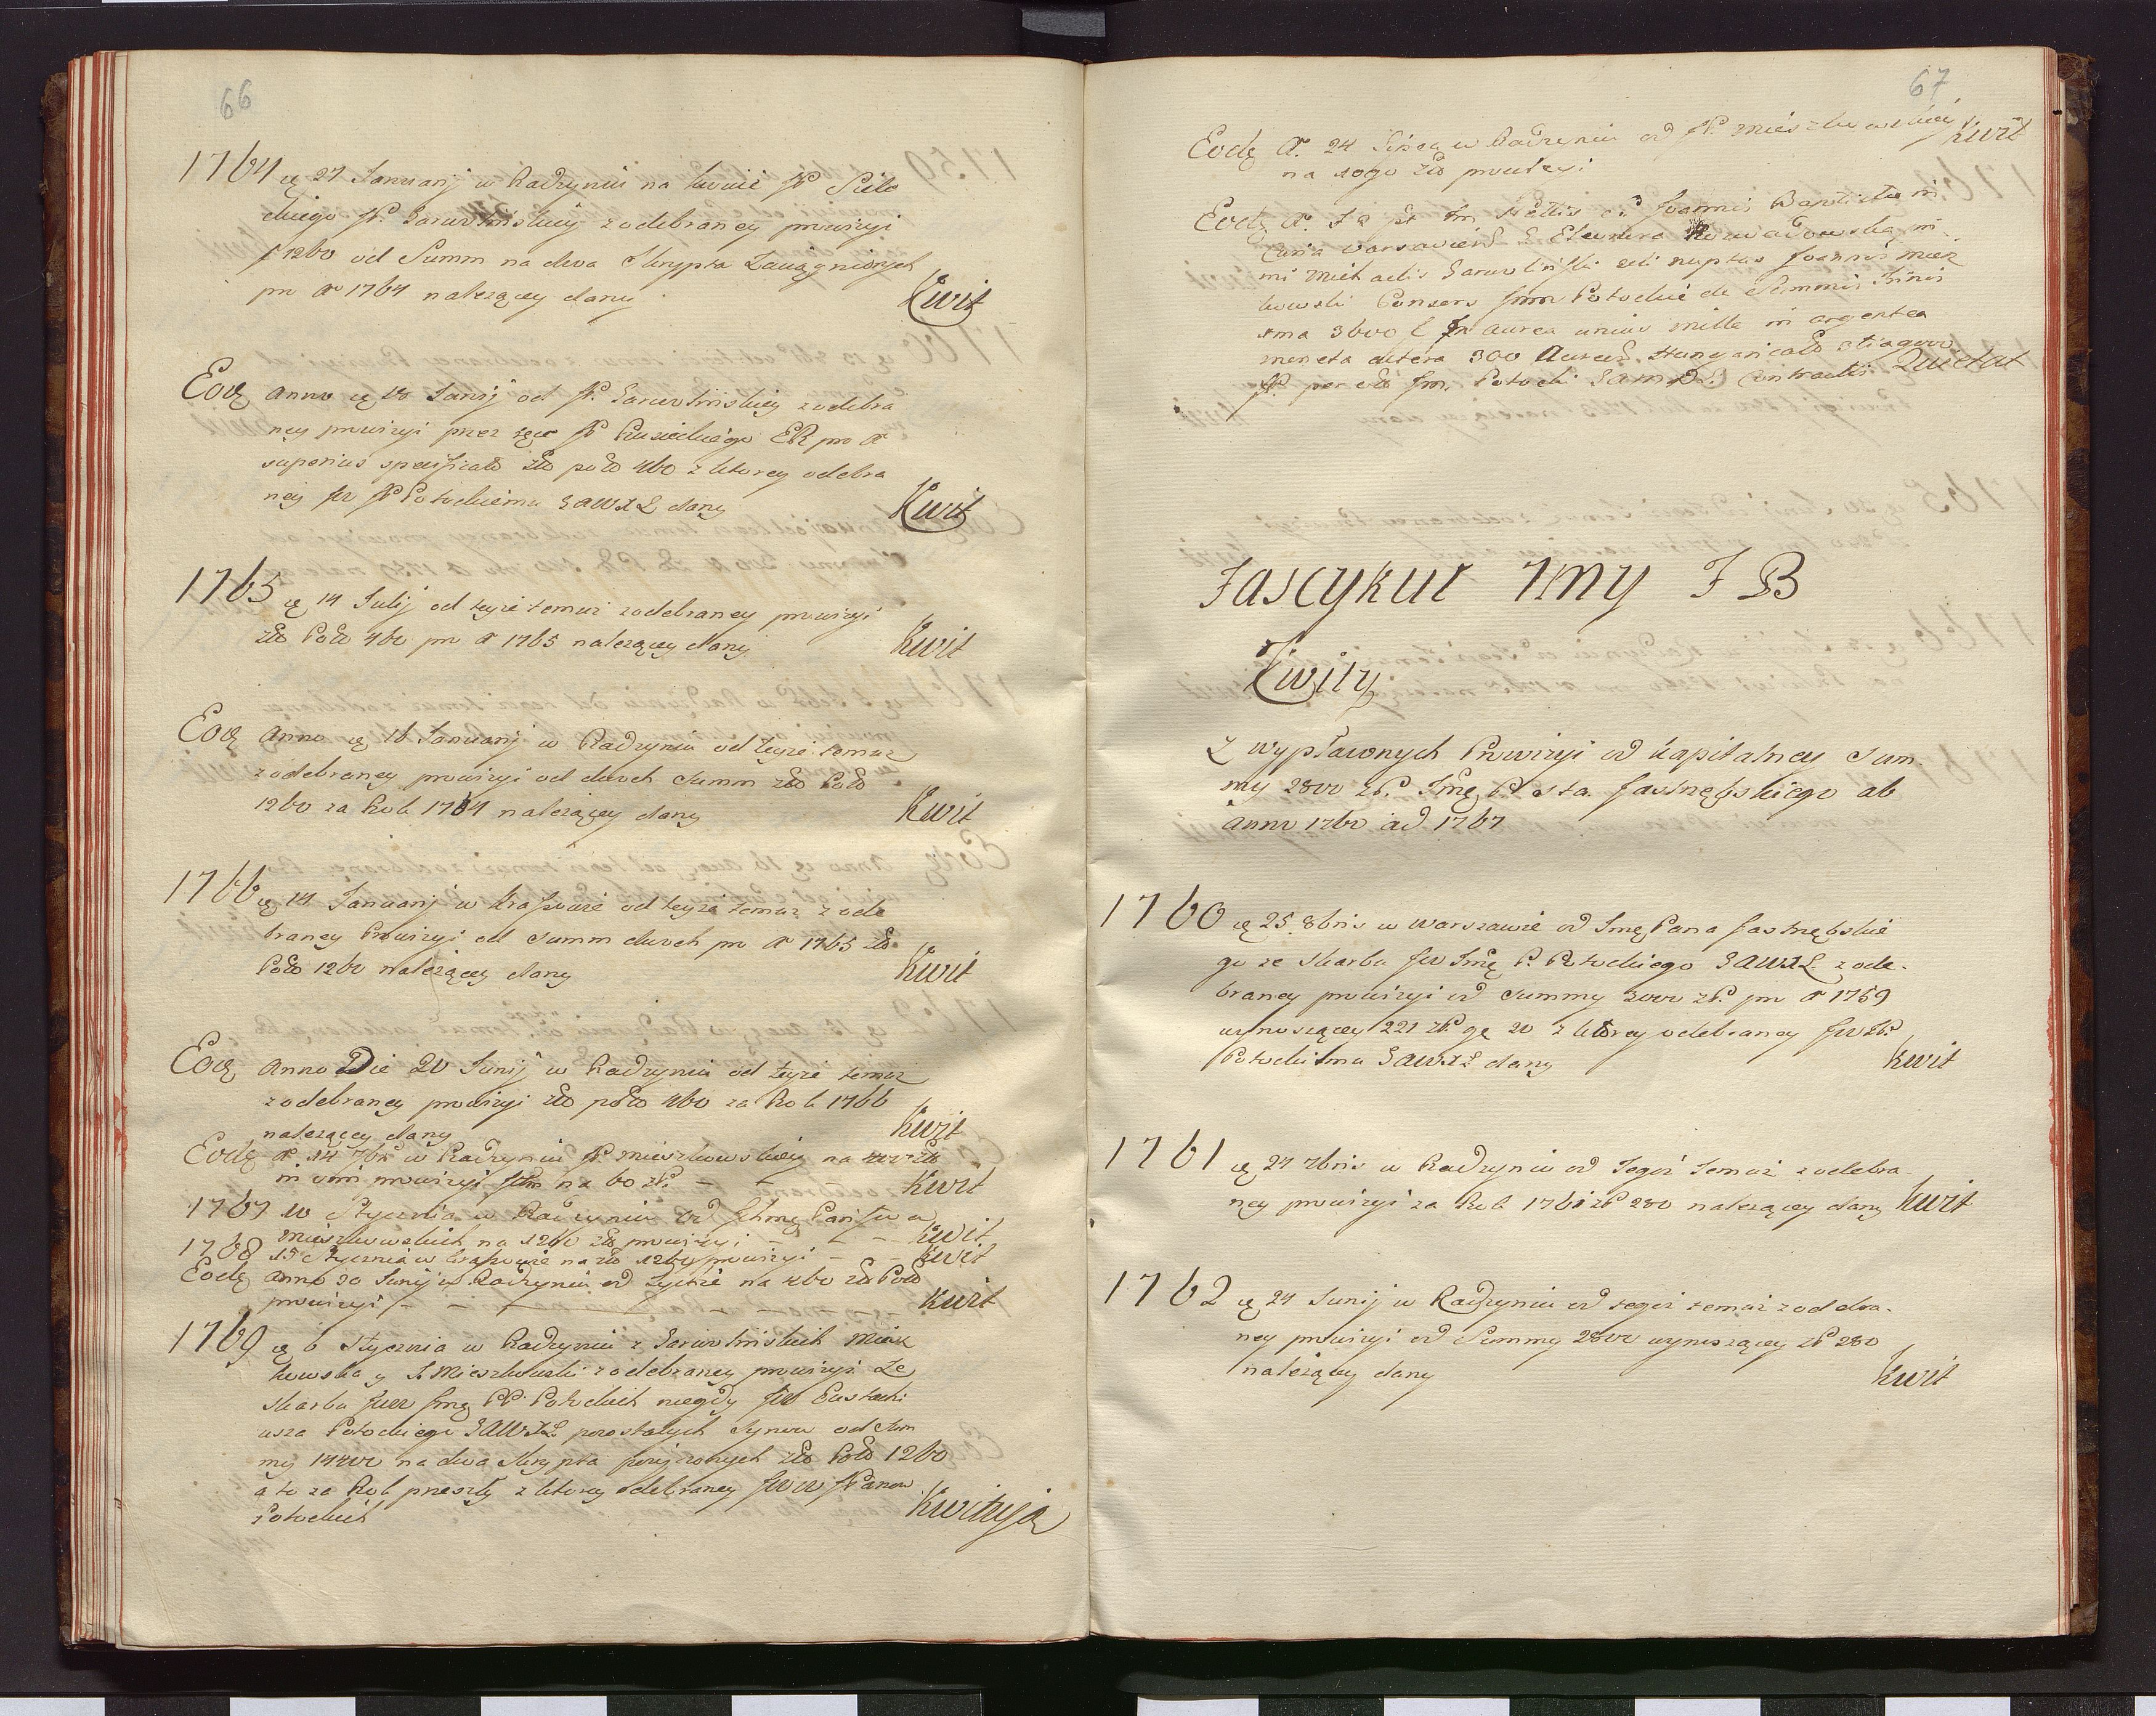 66
1764 ię 27 Januarij w Radzyniu na kwicie JP Siele
ckiego JP. Garwolińskiey z odebraney prowizyi
f 1260 od Summ na dwa Skrypta Zaciągnionych
pro Aº 1764 należącey dany
Kwit
Eodę anno ię 18 Junij od JP. Garwolińskiey z odebra
ney prowizyi przez ręce JP Rusieckiego ER pro Aº
superius specificato złł polł 460 z ktorey odebra
ney JW JP Potockiemu GAWXL dany
Kwit
1765 ię 14 Julij od teyże temuż z odebraney prowizyi
złł Polł 460 pro Aº 1765 należącey dany
Kwit
Eodę Anno ię 16 Januarij w Radzyniu od teyże temuż
z odebraney prowizyi od dwoch summ złł Polł
1260 za Rok 1764 należącey dany
Kwit
1766 ię 14 Januarij w od teyże temuż z ode
braney Prowizyi od summ dwoch pro Aº 1765 złł
Polł 1260 należącey dany
Kwit
Eodę Anno Die 20 Junij w Radzyniu od teyże temuż
z odebraney prowizyi złł polł 460 za Rok 1766
należącey dany
Kwit
Eodę Aº 14 7br w Radzyniu JP. Mieszkowskiey na złł
in vim prowizyi na 60 złł – –
Kwit
1767 10 Stycznia w Radzyniu od Państwa
Mieszkowskich na 1260 złł prowizyi – – – Kwit
1768 15 Stycznia w na złł 1260 prowizyi – – Kwit
Eodę anno 30 Junij w Radzyniu od Tychże na 460 złł Polł
prowizyi – – – – – – Kwit
1769 ię 6 Stycznia w Radzyniu z Garwolińskich Miesz
kowska y JP. Mieszkowski z odebraney prowizyi ze
skarbu JWW Jmę PP Potockich niegdy JW Eustachi
usza Potockiego GAWXL. pozostałych Synow od Sum
my 14400 na dwa Skrypta złł Polł 1260
a to za Rok przeszły z ktorey odebraney JWW JPanow
Potockich
Kwitacyja
67
Eodę Aº. 24 Lipca w Radzyniu od JP. Mieszkowskiey
na 1090 złł prowizyi
Kwit
Eodę Aº. Joannis Baptistæ in
Curia Varsaviens Eleonora in
mi Michaelis Garwoliński nuptus Joannis Miesz
kowski Consors Jmm Potockie de Summis
sma 3600 f in aurea unius mille in argentea
moneta altera 300 Aureor. Hungaricalł
JP. per olł Jm. Potocki GAMDL. contractis Quietat
Fascykuł 7my F B
Kwity
Z wypłaconych Prowizyi od kapitalney Sum-
my 2800 złP. Jmę Pa sta Jastrzębskiego ab
Anno 1760 ad 1767
1760 ię 25. 8bris w Warszawie od Jmę Pana Jastrzębskie
go ze skarbu JW Jmę P. Potockiego GAWXL. z ode-
braney prowizyi od summy 3000 złP. pro Aº 1759
wynoszącey 221 złP. gę 20 z ktorey odebraney JW złP.
Potockiemu GAWXL dany
Kwit
1761 ię 27 xbris w Radzyniu od Tegoż Temuż z odebra-
ney prowizyi za Rok 1761 złP 280 należącey dany Kwit
1762 ię 24 Junij w Radzyniu od tegoż temuż z odebra-
ney prowizyi od Summy 2800 wynoszącey złP 280
należącey dany
Kwit